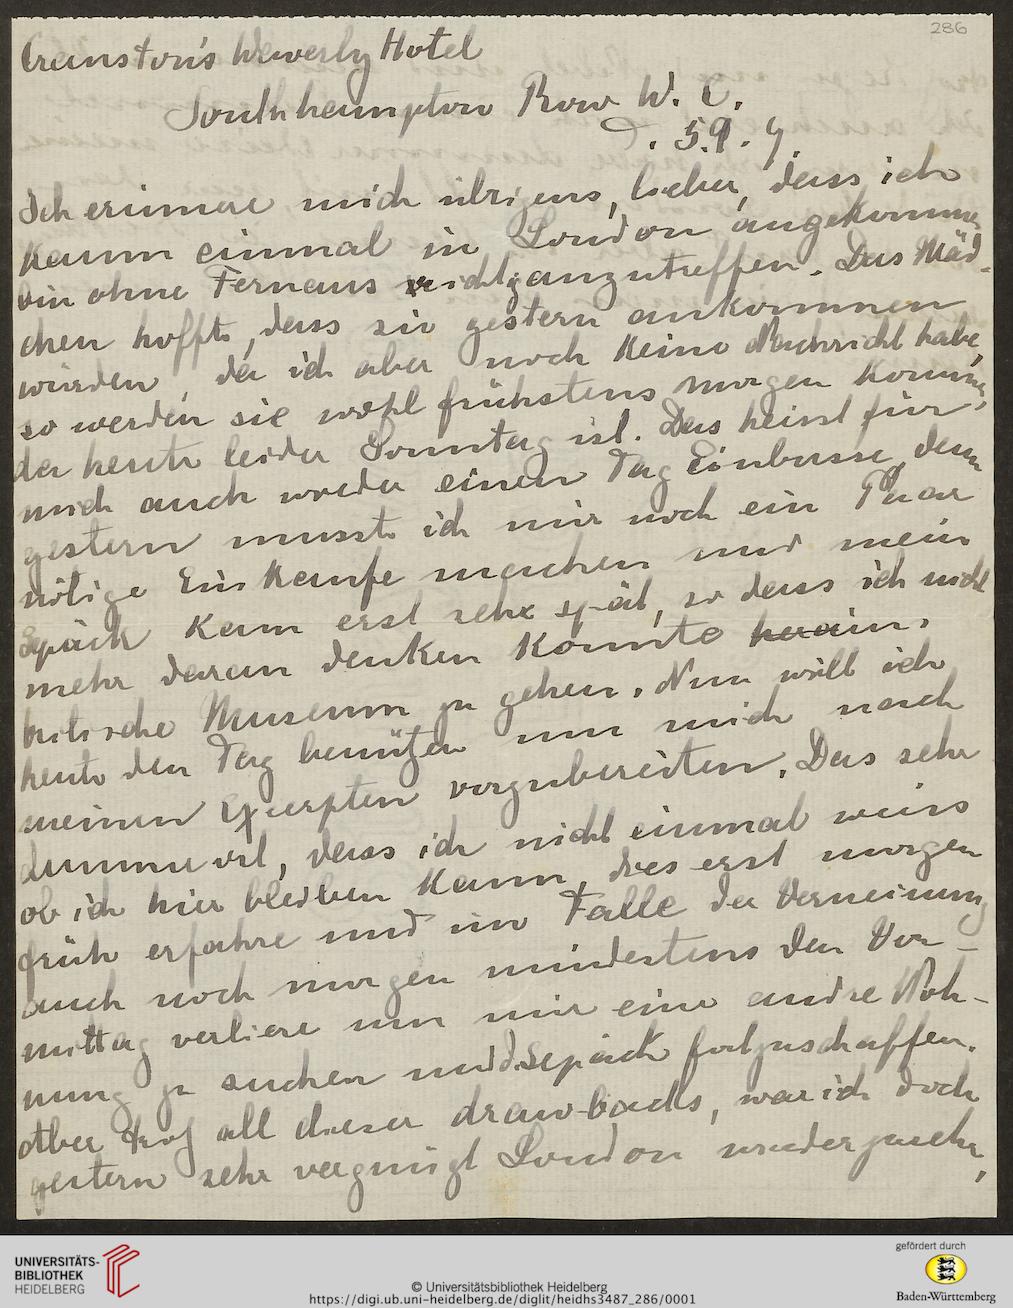 286
Cranston's Waverly Hotel
Southhampton Row W. C.
d. 5. 9.
Ich erinnere mich übrigens, lieber, dass ich
kaum einmal in London angekommen
bin ohne Fernaus nicht anzutreffen. Das Mäd-
chen hofft, dass sie gestern ankommen
würden, da ich aber noch keine Nachricht habe,
so werden sie wohl frühstens morgen kommen,
da heute leider Sonntag ist. Das heisst für
mich auch wieder einen Tag Einbusse, denn
gestern musste ich mir noch ein Paar
nötige Einkäufe machen und mein
Gepäck kam erst sehr spät, so dass ich nicht
mehr daran denken konnte in.
britische Museum zu gehen. Nun will ich
heute den Tag benützen um mich nach
meinen Excerpten vorzubereiten. Das sehr
dumme ist, dass ich nicht einmal weiss
ob ich hier bleiben kann, dies erst morgen
früh erfahre und im Falle der Verneinung
auch noch morgen mindestens den Vor-
mittag verliere um mir eine andre Woh-
nung zu suchen und d. Gepäck fortzuschaffen.
Aber trotz all dieser draw-backs, war ich doch
gestern sehr vergnügt London wiederzusehn,
UNIVERSITÄTS-
BIBLIOTHEK
HEIDELBERG
© Universitätsbibliothek Heidelberg
https://digi.ub.uni-heidelberg.de/diglit/heidhs3487_286/0001
gefördert durch
Baden-Württemberg